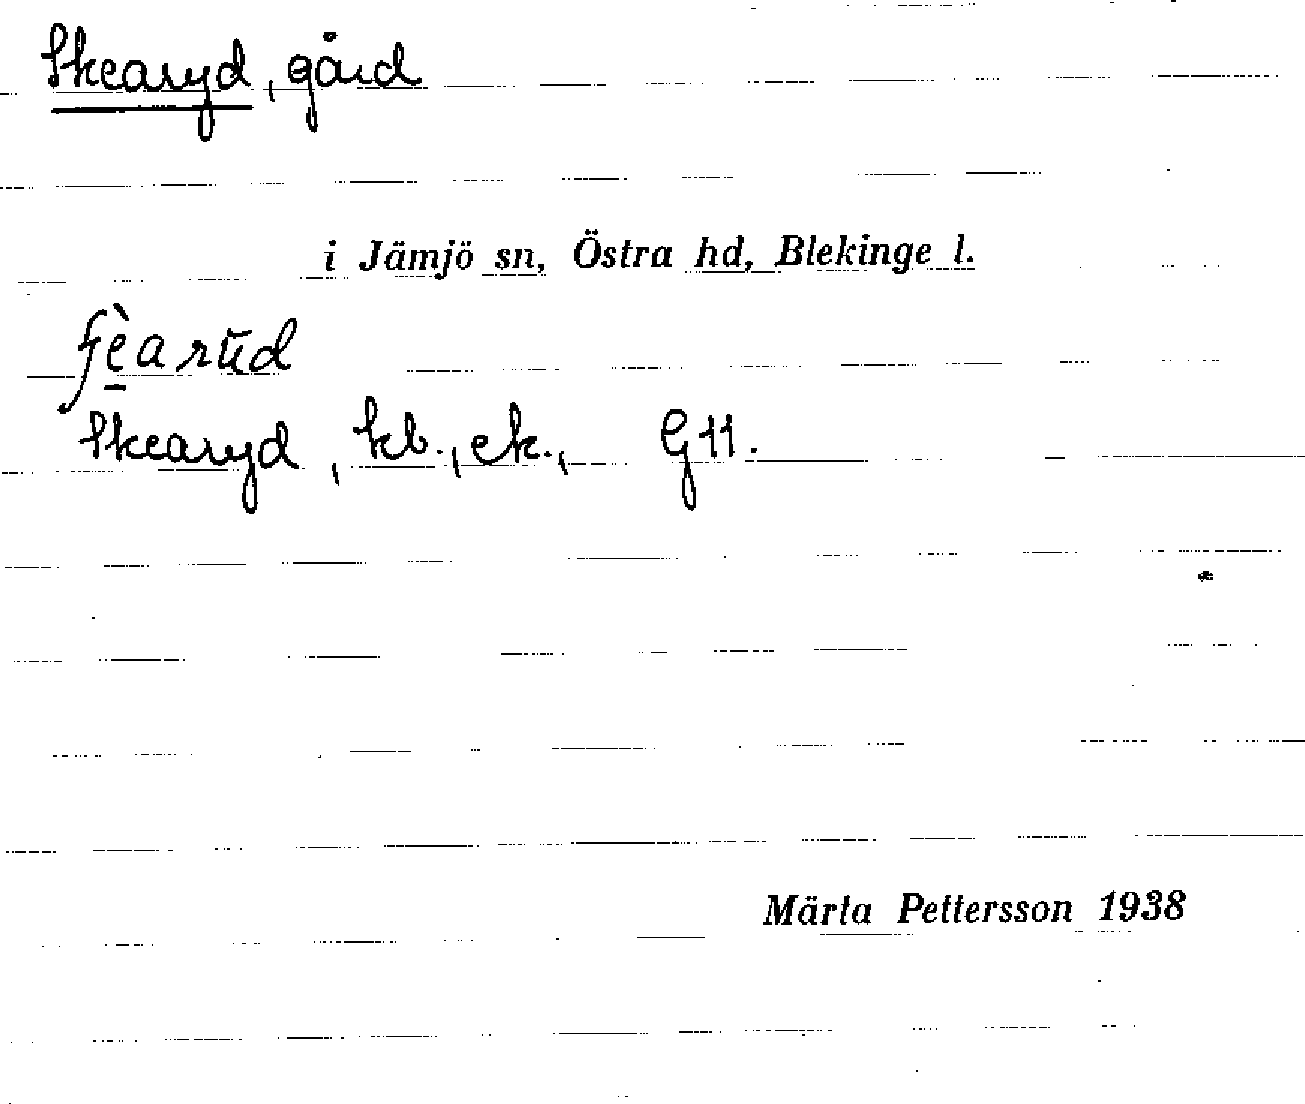 Skearyd, gård
i Jämjö sn, Östra hd, Blekinge l.
ʃè̱arŭd
Skearyd, kb., ek., G 11.
Märta Pettersson 1938